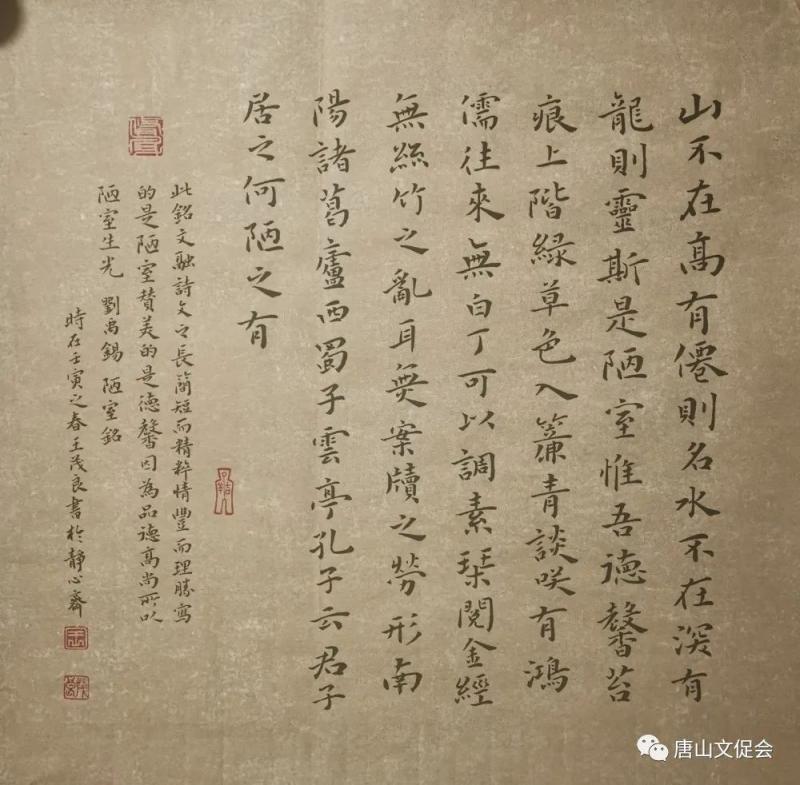 山不在高有僊則名水不在深有
龍則靈斯是陋室惟吾德馨苔
痕上階緑草色入簾青談咲有鴻
儒往來無白丁可以調素琹閱金經
無絲竹之亂耳無案牘之勞形南
陽諸葛廬西蜀子雲亭孔子云君子
居之何陋之有
此銘文融詩文之長簡短而精粹情豐而理勝寫
的是陋室贊美的是德馨因為品德高尚所以
陋室生光 劉禹錫 陋室銘
時在壬寅之春王茂良書於靜心齋
唐山文促会